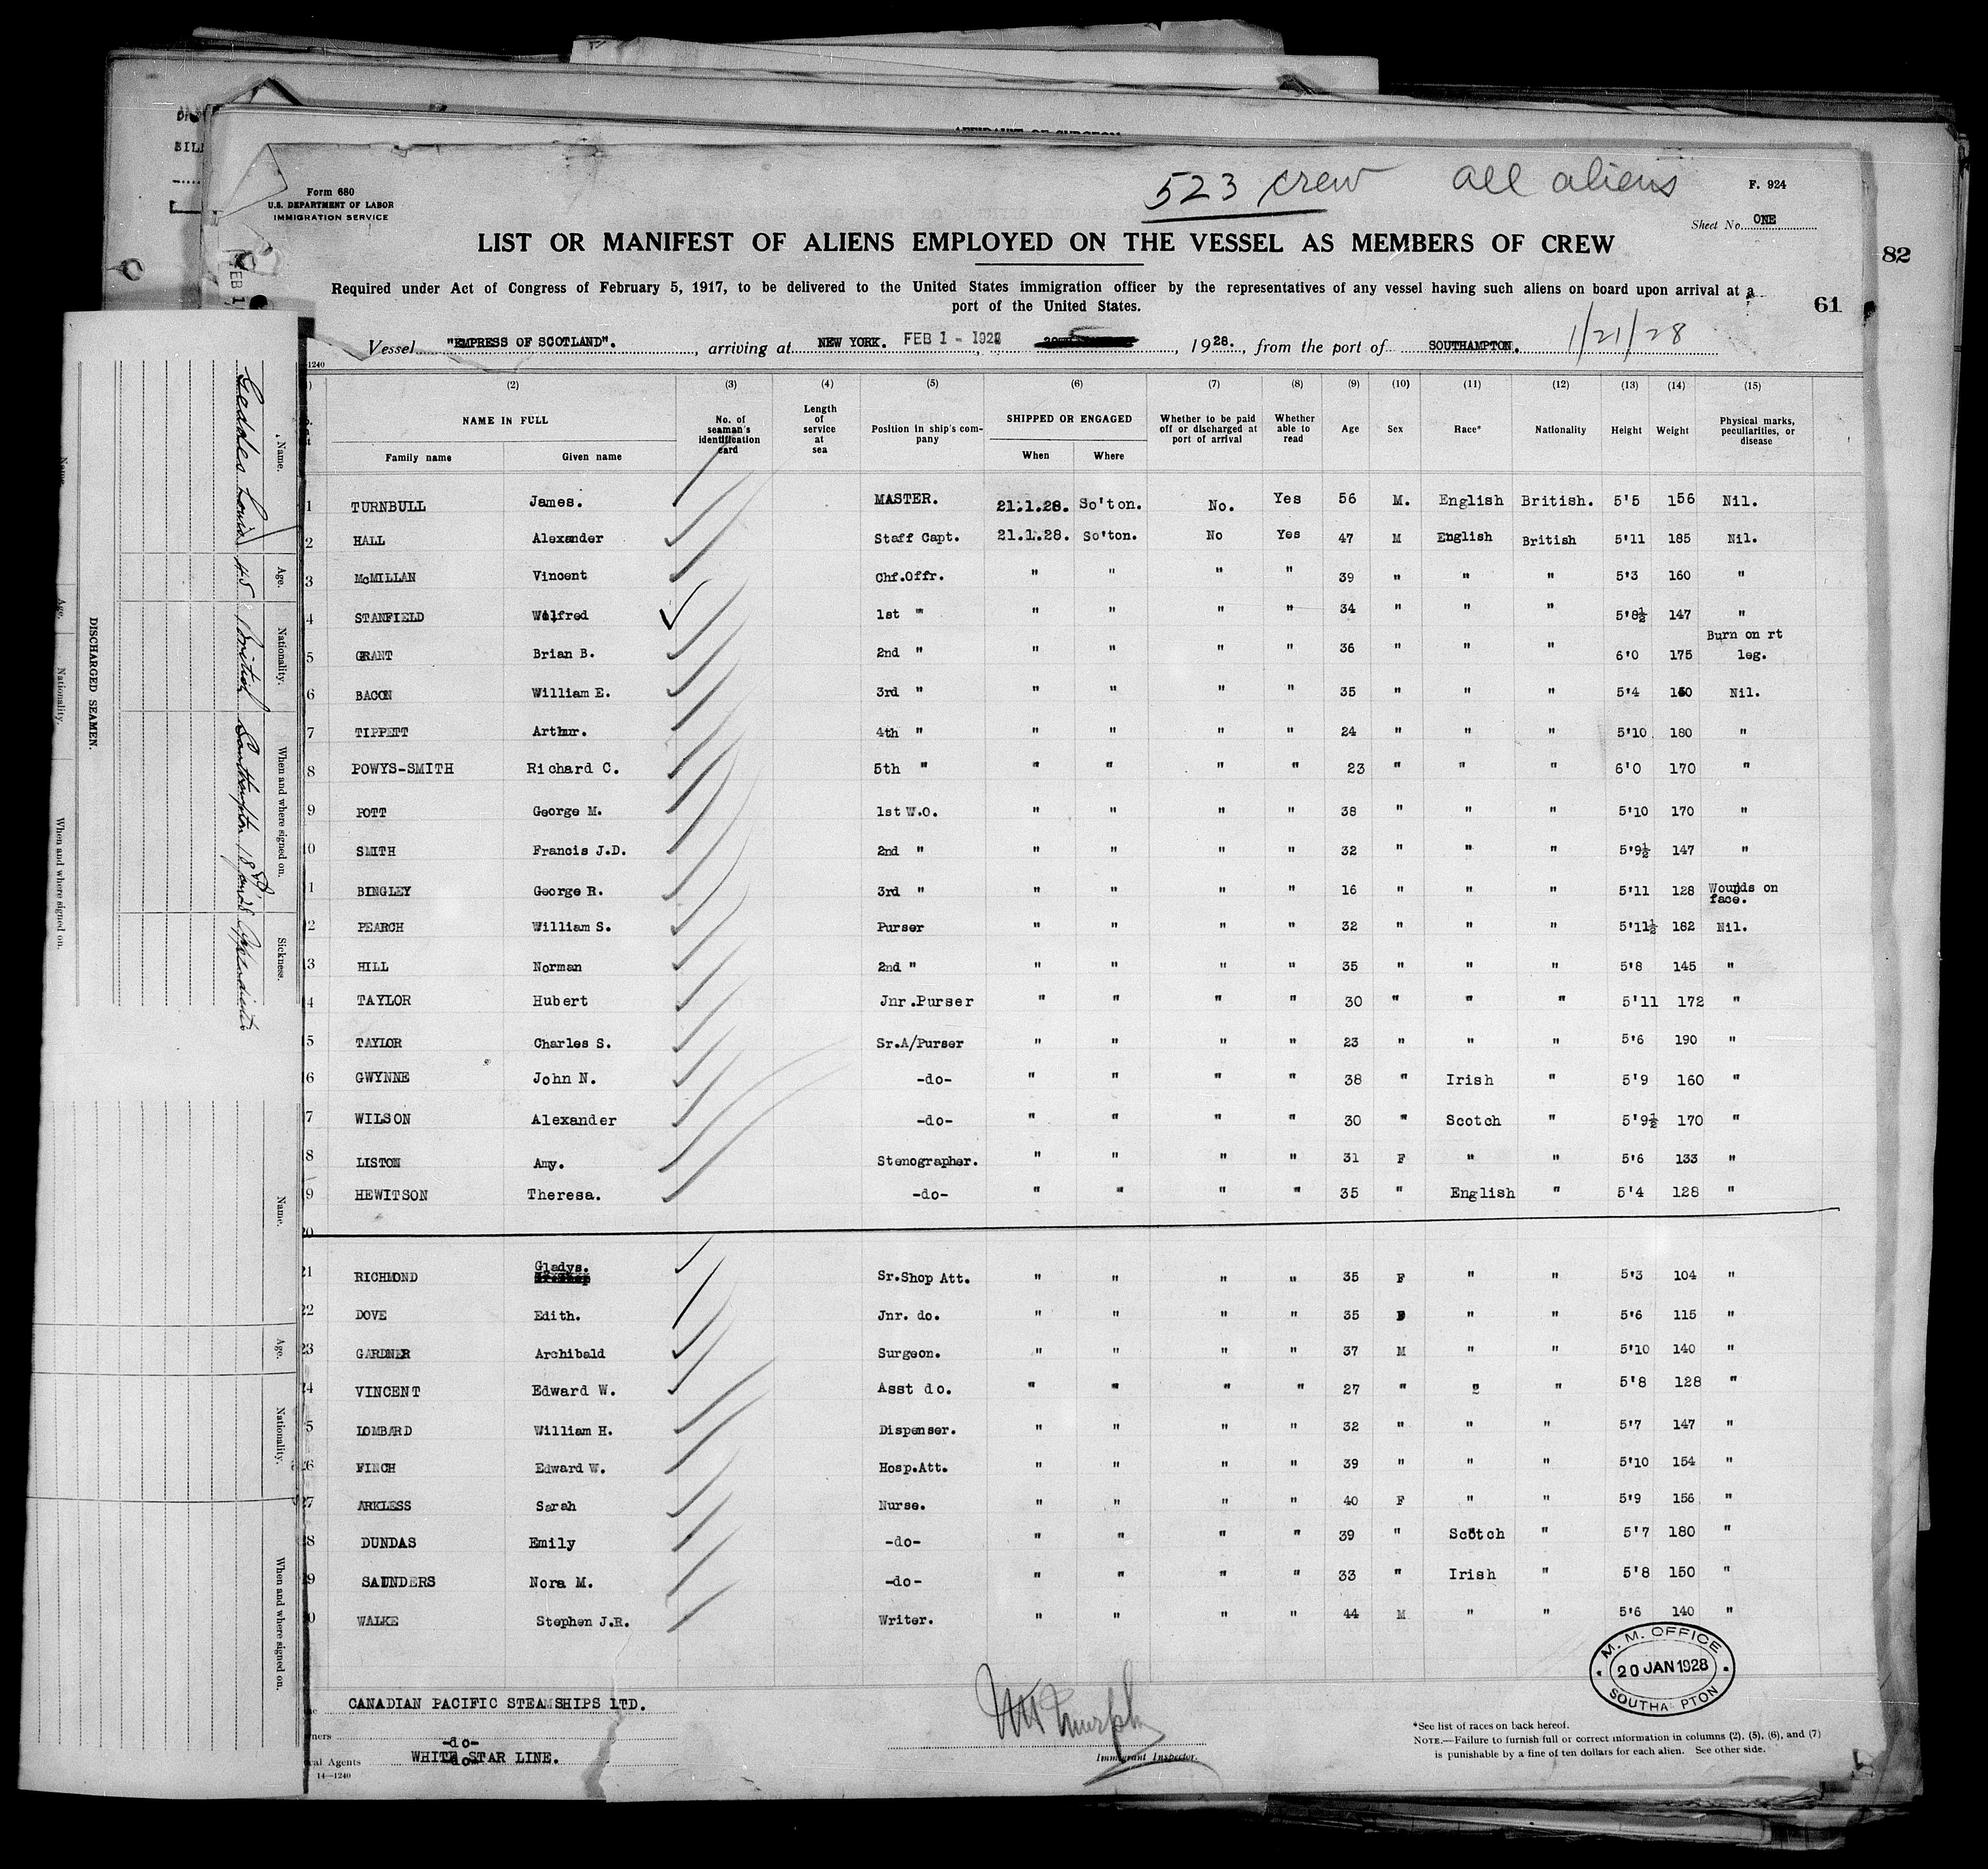 523 crew all aliens
F. 924
Form 680
U.S. DEPARTMENT OF LABOR
IMMIGRATION SERVICE
Sheet No. ONE
LIST OR MANIFEST OF ALIENS EMPLOYED ON THE VESSEL AS MEMBERS OF CREW
82
Required under Act of Congress of February 5, 1917, to be delivered to the United States immigration officer by the representatives of any vessel having such aliens on board upon arrival at a
port of the United States.
61
Vessel "EMPRESS OF SCOTLAND"., arriving at NEW YORK. FEB 1 - 1928, 1928., from the port of SOUTHAMPTON. 1/21/28
(2) (3) (4) (5) (6) (7) (8) (9) (10) (11) (12) (13) (14) (15)
NAME IN FULL
Family name Given name
No. of seaman's identification card
Length of service at sea
Position in ship's company
SHIPPED OR ENGAGED
When Where
Whether to be paid off or discharged at port of arrival
Whether able to read
Age Sex Race* Nationality Height Weight
Physical marks, peculiarities, or disease
1 TURNBULL James. MASTER. 21.1.28. So'ton. No. Yes 56 M. English British. 5'5 156 Nil.
2 HALL Alexander Staff Capt. 21.1.28. So'ton. No Yes 47 M English British 5'11 185 Nil.
3 McMILLAN Vincent Chf.Offr. " " " " 39 " " " 5'3 160 "
4 STANFIELD Wilfred 1st " " " " " 34 " " " 5'8½ 147 "
5 GRANT Brian B. 2nd " " " " " 36 " " " 6'0 175 Burn on rt leg.
6 BACON William E. 3rd " " " " " 35 " " " 5'4 Nil.
7 TIPPETT Arthur. 4th " " " " " 24 " " " 5'10 180 "
8 POWYS-SMITH Richard C. 5th " " " " " 23 " " " 6'0 170 "
9 POTT George M. 1st W.O. " " " " 38 " " " 5'10 170 "
10 SMITH Francis J.D. 2nd " " " " " 32 " " " 5'9½ 147 "
1 BINGLEY George R. 3rd " " " " " 16 " " " 5'11 128 Wounds on face.
2 PEARCH William S. Purser " " " " 32 " " " 5'11½ 182 Nil.
3 HILL Norman 2nd " " " " " 35 " " " 5'8 145 "
4 TAYLOR Hubert Jnr.Purser " " " " 30 " " " 5'11 172 "
5 TAYLOR Charles S. Sr.A/Purser " " " " 23 " " " 5'6 190 "
6 GWYNNE John N. -do- " " " " 38 " Irish " 5'9 160 "
7 WILSON Alexander -do- " " " " 30 " Scotch " 5'9½ 170 "
8 LISTON Amy. Stenographer. " " " " 31 F " " 5'6 133 "
9 HEWITSON Theresa. -do- " " " " 35 " English " 5'4 128 "
20
21 RICHMOND Gladys. Sr.Shop Att. " " " " 35 F " " 5'3 104 "
22 DOVE Edith. Jnr. do. " " " " 35 " " 5'6 115 "
23 GARDNER Archibald Surgeon. " " " " 37 M " " 5'10 140 "
24 VINCENT Edward W. Asst do. " " " " 27 " " 5'8 128 "
5 LOMBARD William H. Dispenser. " " " " 32 " " " 5'7 147 "
26 FINCH Edward W. Hosp.Att. " " " " 39 " " " 5'10 154 "
27 ARKLESS Sarah Nurse. " " " " 40 F " " 5'9 156 "
8 DUNDAS Emily -do- " " " " 39 " Scotch " 5'7 180 "
9 SAUNDERS Nora M. -do- " " " " 33 " Irish " 5'8 150 "
0 WALKE Stephen J.R. Writer. " " " " 44 M " " 5'6 140 "
M. M. OFFICE
20 JAN 1928
SOUTHA PTON
CANADIAN PACIFIC STEAMSHIPS LTD.
ners -do-
cal Agents -do- WHITE STAR LINE.
14—1240
Immigrant Inspector.
*See list of races on back hereof.
NOTE.—Failure to furnish full or correct information in columns (2), (5), (6), and (7)
is punishable by a fine of ten dollars for each alien. See other side.
DISCHARGED SEAMEN.
Name. Age. Nationality. When and where signed on. Sickness.
Geddes Louis 45 British Southampton
Name. Age. Nationality. When and where signed on.
Name. Age. Nationality. When and where signed on.
FEB 1
1240